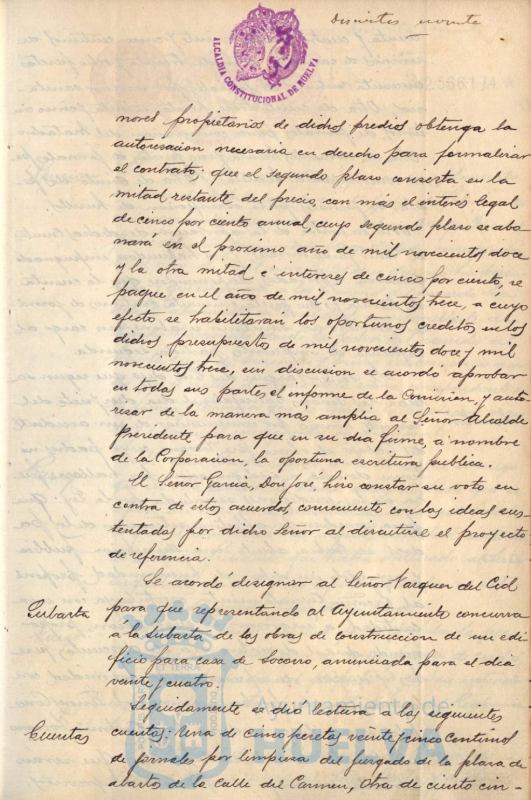 Doscientos noventa
ALCALDIA CONSTITUCIONAL DE HUELVA
nores propietarios de dichos predios obtenga la
autorisacion necesaria en derecho para formalizar
el contrato; que el segundo plaso consista en la
mitad restante del precio, con más el interés legal
de cinco por ciento anual, cuyo segundo plaso se abo-
nará en el proximo año de mil novecientos doce
y la otra mitad é intereses de cinco por ciento, se
pague en el año de mil novecientos trece, á cuyo
efecto se habilitarán los oportunos creditos en los
dichos presupuestos de mil novecientos doce y mil
novecientos trece, sin discusion se acordó aprobar
en todas sus partes el informe de la Comision, y auto-
resar de la manera más amplia al Señor Alcalde
Presidente para que en su dia firme, á nombre
de la Corporacion, la oportuna escritura publica.
El Señor Garcia, Don José, hiso constar su voto en
contra de estos acuerdos consecuente con las ideas sus-
tentadas por dicho Señor al discutirse el proyecto
de referencia.
Se acordó designar al Señor Vazquez del Cid
Subasta para que representando al Ayuntamiento concurra
á la subasta de las obras de construccion de un edi-
ficio para casa de Socorro, anunciada para el dia
veinte y cuatro.
Seguidamente se dió lectura á las siguientes
Cuentas cuentas: Una de cinco pesetas veinte y cinco centimos
de jornales por limpiesa del jusgado de la plasa de
abastos de la Calle del Carmen, Otra de ciento cin-
Ayuntamiento de
HUELVA